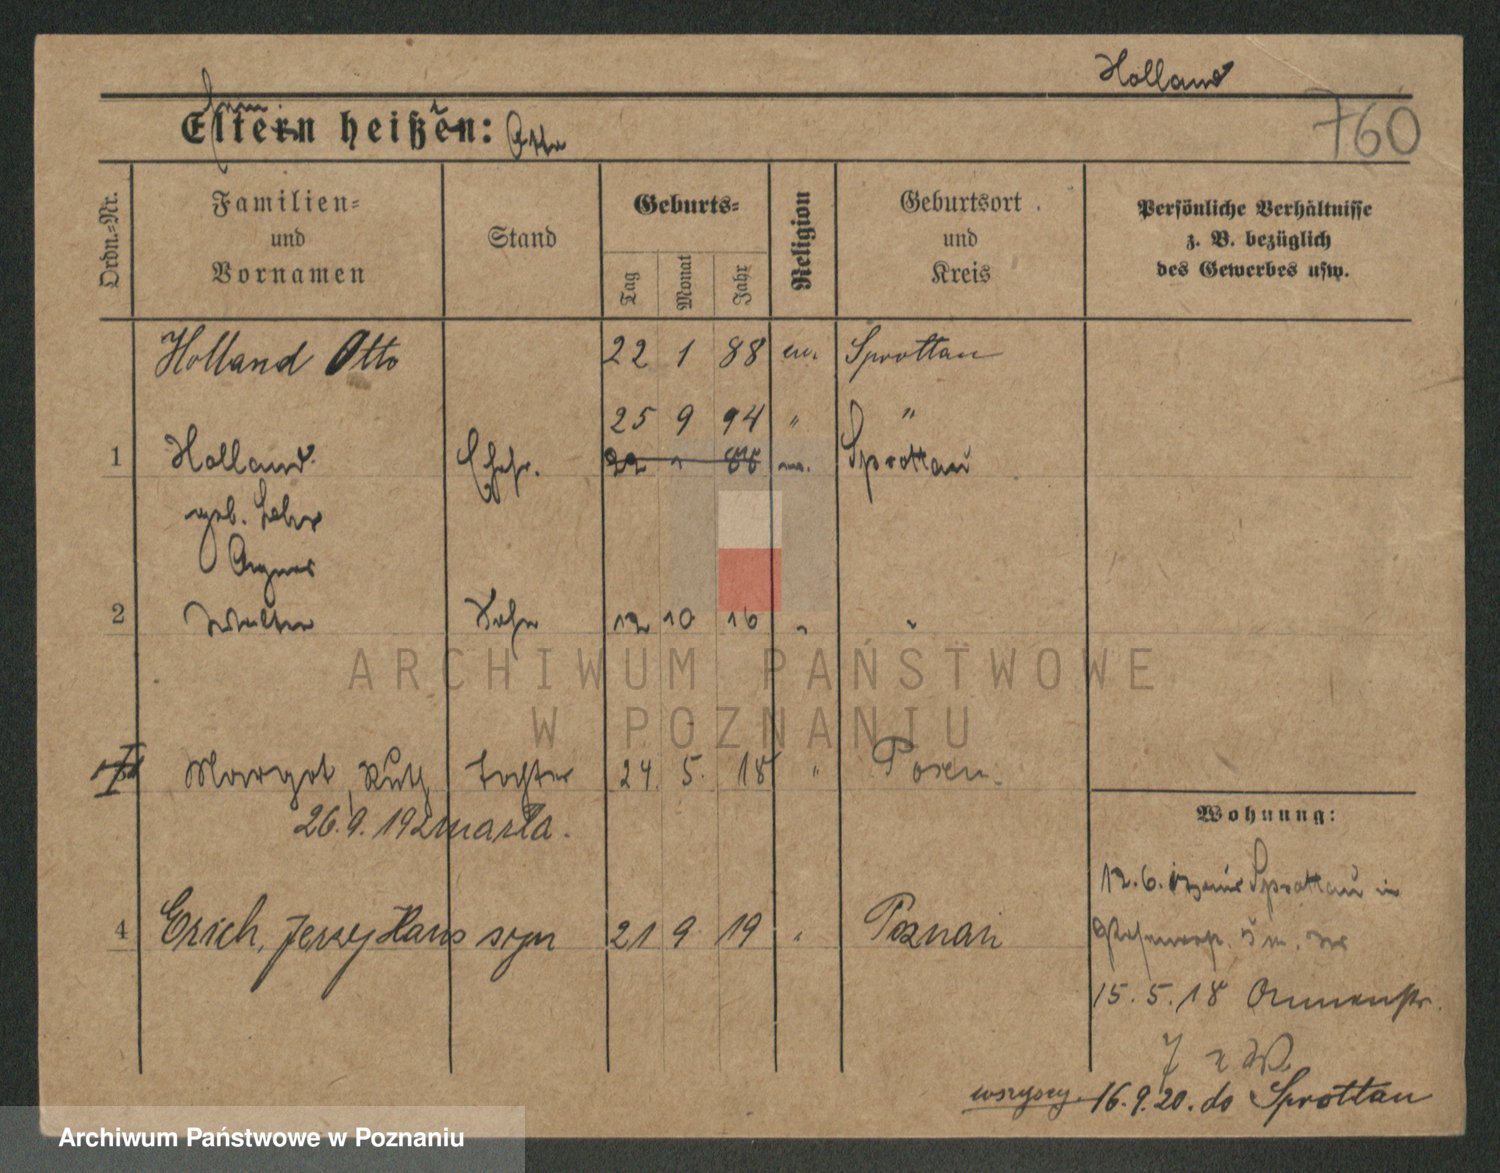 Holland
760
Eltern heißen: Otto
Ordn.-Nr.
Familien-
und
Vornamen
Stand
Geburts-
Tag
Monat
Jahr
Religion
Geburtsort
und
Kreis
Persönliche Verhältnisse
z. B. bezüglich
des Gewerbes usw.
Holland Otto 22 1 88 ev. Sprottau
25 9 94 " "
1 Holland Ehefr. 22 1 88 ev. Sprottau
geb.
Agnes
2 Walter Sohn 12 10 16 " "
ARCHIWUM PAŃSTWOWE
W POZNANIU
Margot, Ruth Tochter 24. 5. 18 " Posen
26.9.19 zmarła.
Wohnung:
12.6. Sprottau in
4 Erich, Jerzy Hans syn 21 9 19 " Poznań
15.5.18
wszyscy 16.9.20. do Sprottau
Archiwum Państwowe w Poznaniu